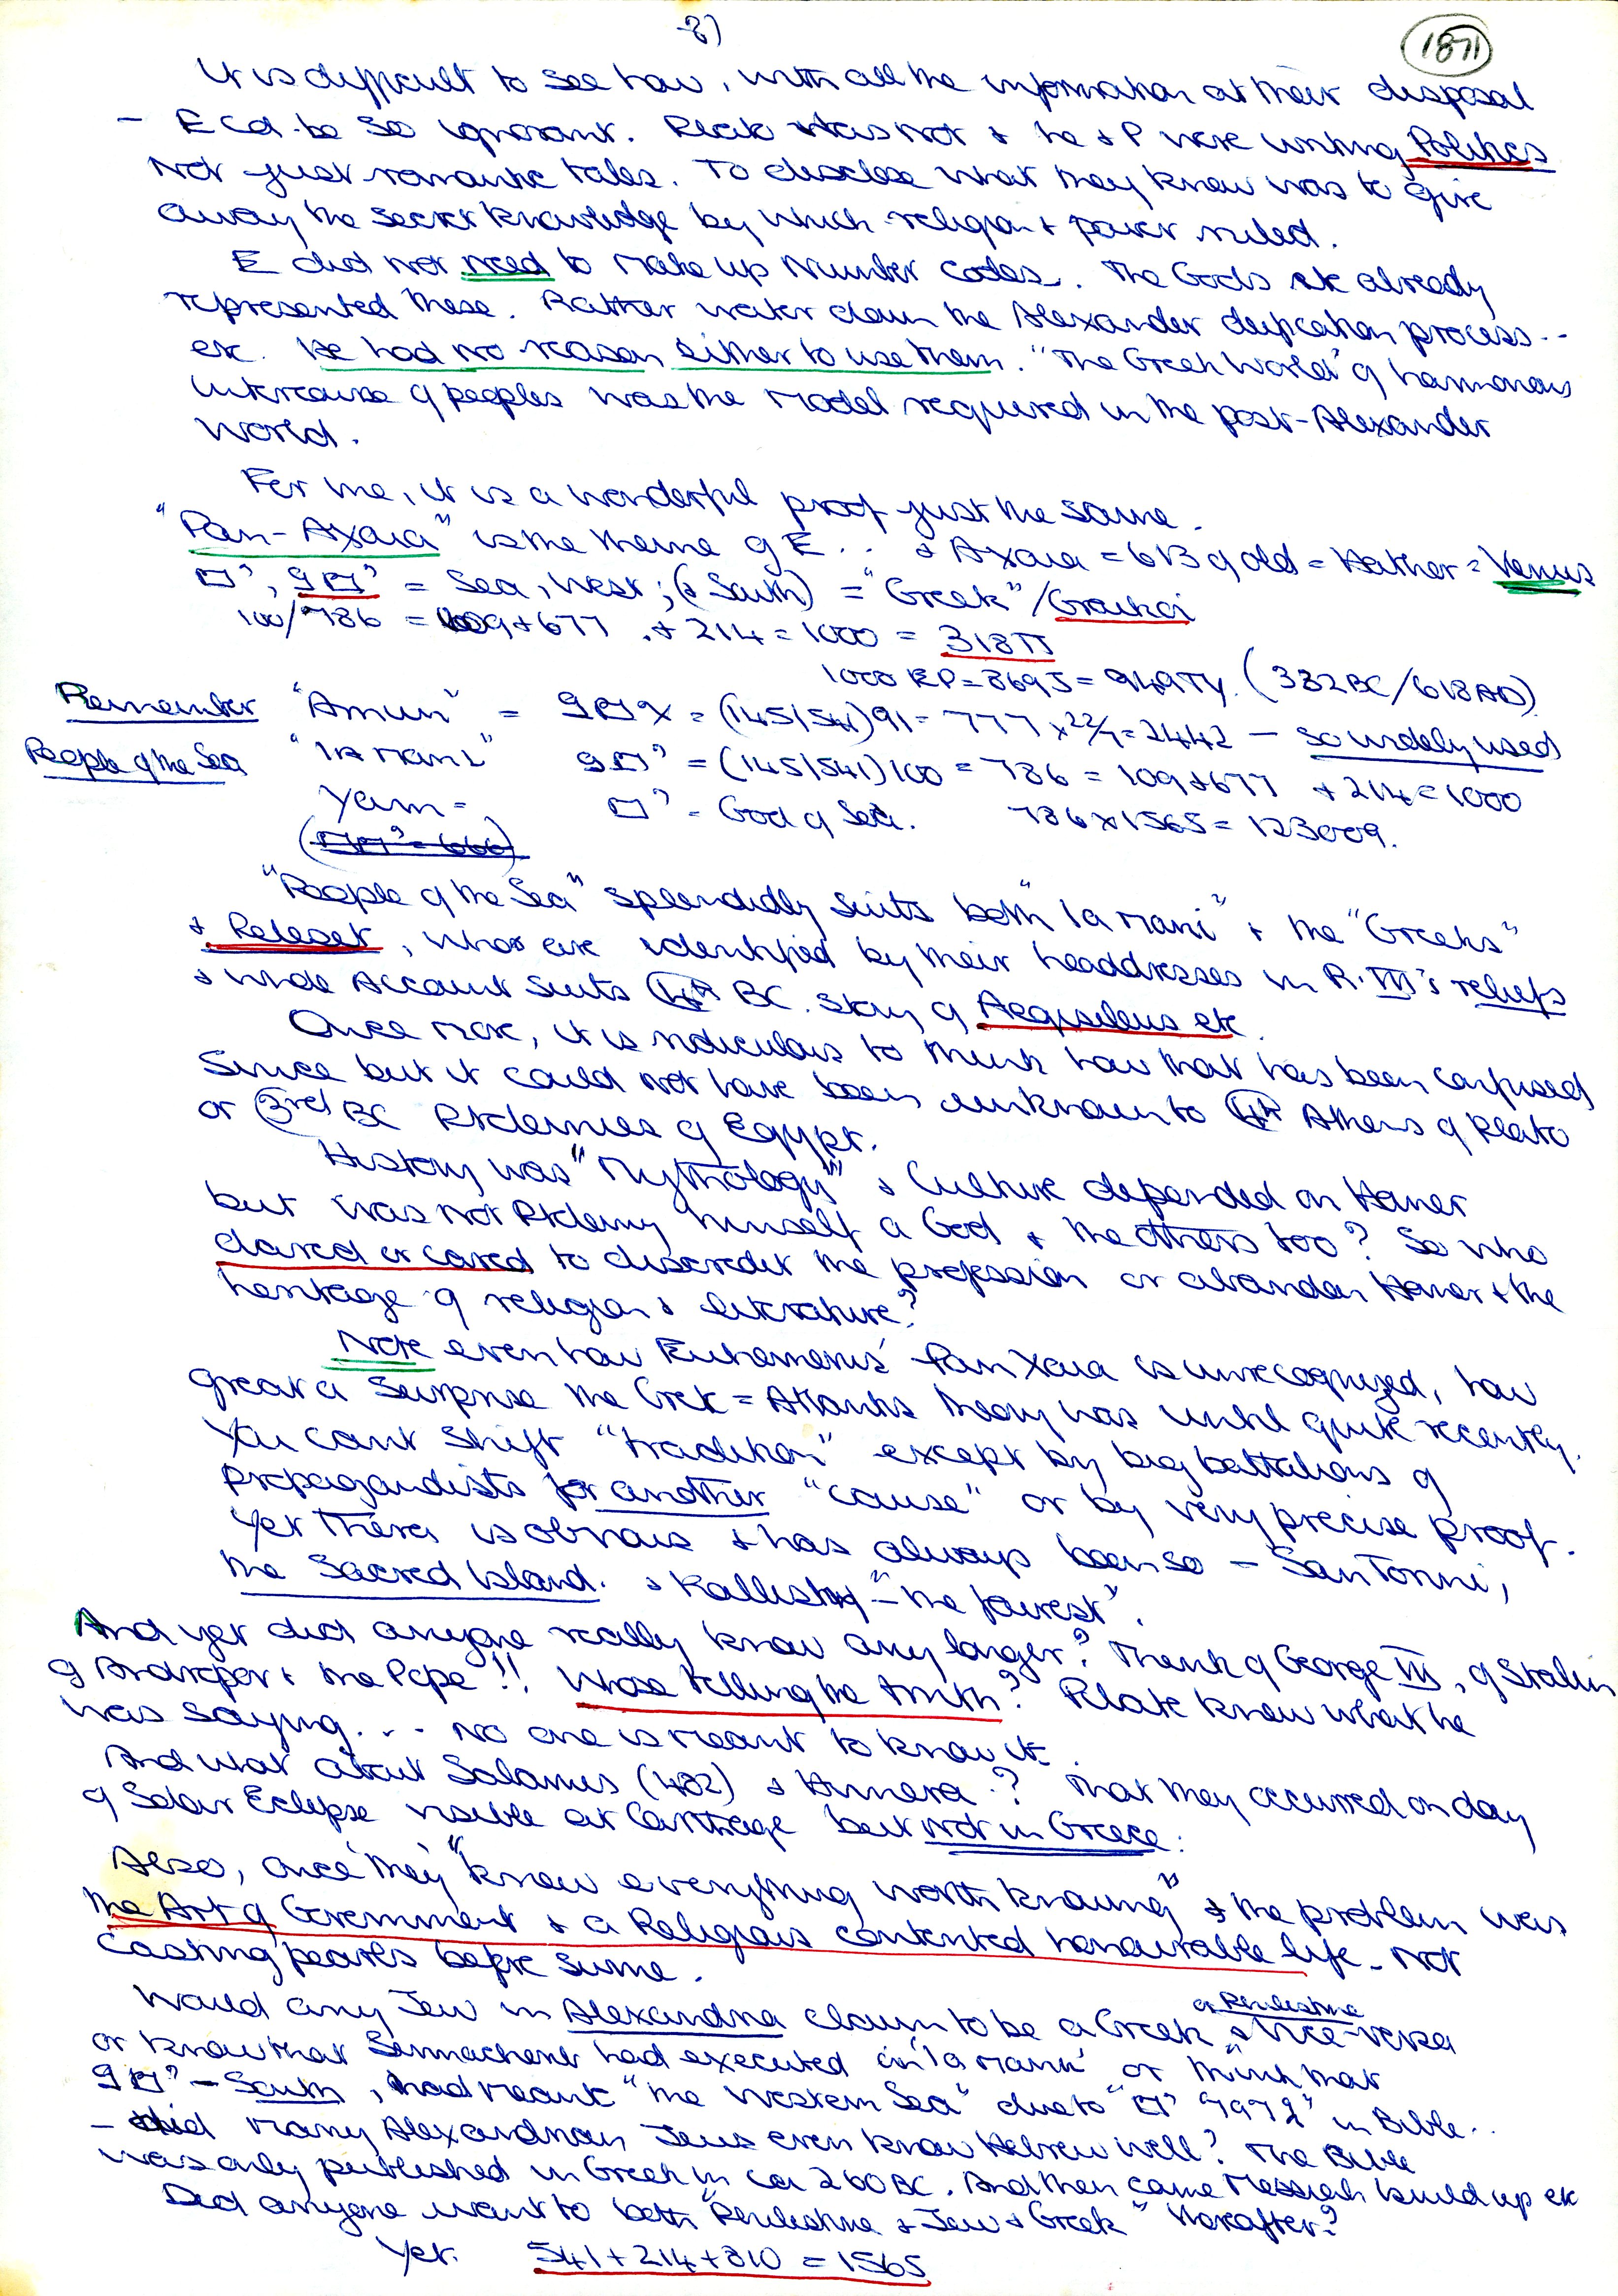 -8)
1871
It is difficult to see how, with all the information at their disposal
- E cd. be so ignorant. Plato was not & he & P were writing Politics
not just romantic tales. To disclose what they knew was to give
away the secret knowledge by which religion & power ruled.
E did not need to make up Number codes. The Gods etc already
represented these. Rather water down the Alexander deification process..
etc. He had no reason either to use them. "The Greek World" of harmonious
intercourse of peoples was the model required in the post-Alexander
World.
For me, it is a wonderful proof just the same.
"Pan-Axaia" is the theme of E... & Axaia = 613 of old = Hathor = Venus
= Sea, West; (& South) = "Greek"/Graikoi
100/786 = 109+677 . + 214 = 1000 = 318π
1000 EP = 869J = 949TY. (332BC/618AD)
Remember "Amun" = (145/541) 91 = 777 x 22/7 = 2442 - so widely used
People of the Sea "IA Mani" = (145/541) 100 = 786 = 109+677 + 214 = 1000
Yam = - God of Sea. 786 x 1565 = 123009.
"People of the Sea" splendidly suits both "Ia Mani" & the "Greeks"
& Peleset, who are identified by their headdresses in R. III's reliefs
& whole Account suits 4th BC. story of Aegisileus etc.
Once more, it is ridiculous to think how that has been confused
since but it could not have been unknown to 4th Athens of Plato
or 3rd BC Ptolemies of Egypt.
History was "Mythology" & Culture depended on Homer
but was not Ptolemy himself a God & the others too? So who
dared or cared to discredit the profession or abandon Homer & the
heritage of religion & literature?
Note even how Euhemerus' Pan Xaia is unrecognized, how
great a surprise the Crete = Atlantis theory was until quite recently.
You cant shift "tradition" except by big battalions of
propagandists for another "cause" or by very precise proof.
Yet Thera is obvious & has always been so - San Torini,
the Sacred Island. & Kallisty "- the fairest".
And yet did anyone really know any longer? Think of George VI, of Stalin
of Andropov & the Pope!! Whose telling the truth? Pilate knew what he
was saying... No one is meant to know it.
And what about Salamis (482) & Himera.? That they occurred on day
of Solar Eclipse visible at Carthage but not in Greece.
Also, once they "knew everything worth knowing" & the problem was
the Art of Government & a Religious contented honourable life - not
casting pearls before swine.
Would any Jew in Alexandria claim to be a Greek or Philistine & vice-versa
or know that Sennacherib had executed an 'Ia Mani' or think that
- South, had meant "the Western Sea" due to in Bible..
- did many Alexandrian Jews even know Hebrew well? The Bible
was only published in Greek in ca 260 BC. And then came Messiah build up etc
Did anyone want to both "Philistine & Jew & Greek" thereafter?
Yet. 541 + 214 + 810 = 1565